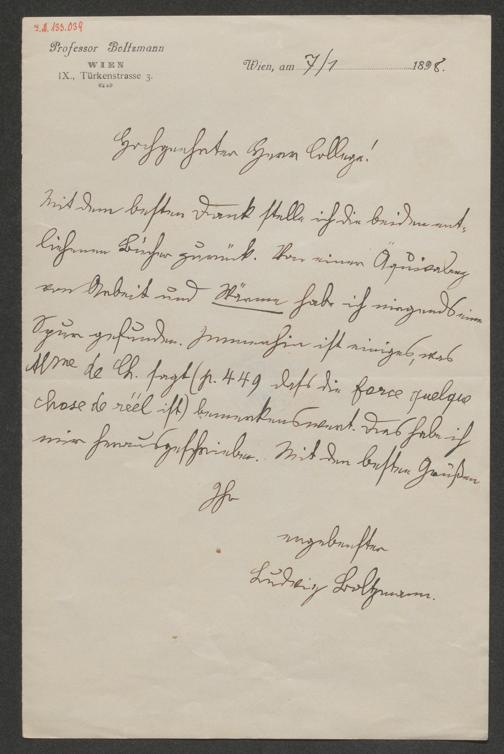 I.N. 133.039
Professor Boltzmann
WIEN
IX., Türkenstrasse 3.
Wien, am 7/1 1898.
Hochgeehrter Herr College!
Mit dem besten Dank stelle ich die beiden ent-
liehenen Bücher zurück. Von einer Äquivalenz
von Arbeit und Wärme habe ich nirgends eine
Spur gefunden. Immerhin ist einiges, was
Mme de Ch. sagt (p. 449 dass die force quelque
chose de réel ist) bemerkenswert. Dies habe ich
mir herausgeschrieben. Mit den besten Grüßen
Ihr
ergebenster
Ludwig Boltzmann.